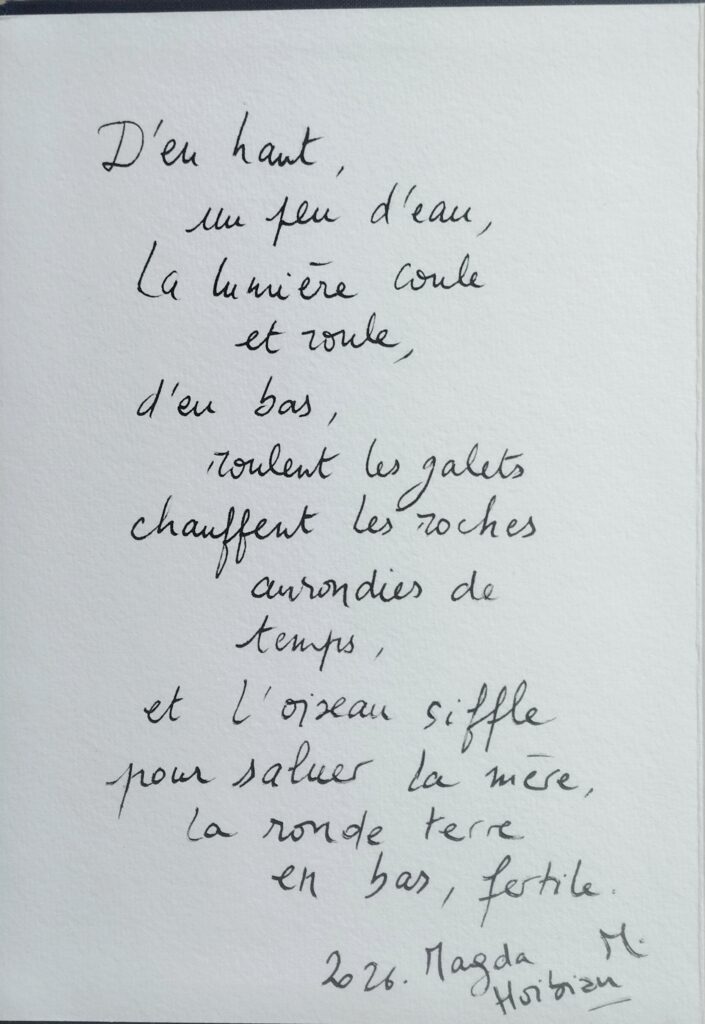 D'en haut,
un peu d'eau,
La lumière coule
et roule,
d'en bas,
roulent les galets
chauffent les roches
arrondies de
temps,
et l'oiseau siffle
pour saluer la mère,
la ronde terre
en bas, fertile.
2026. Magda M.
Hoibian